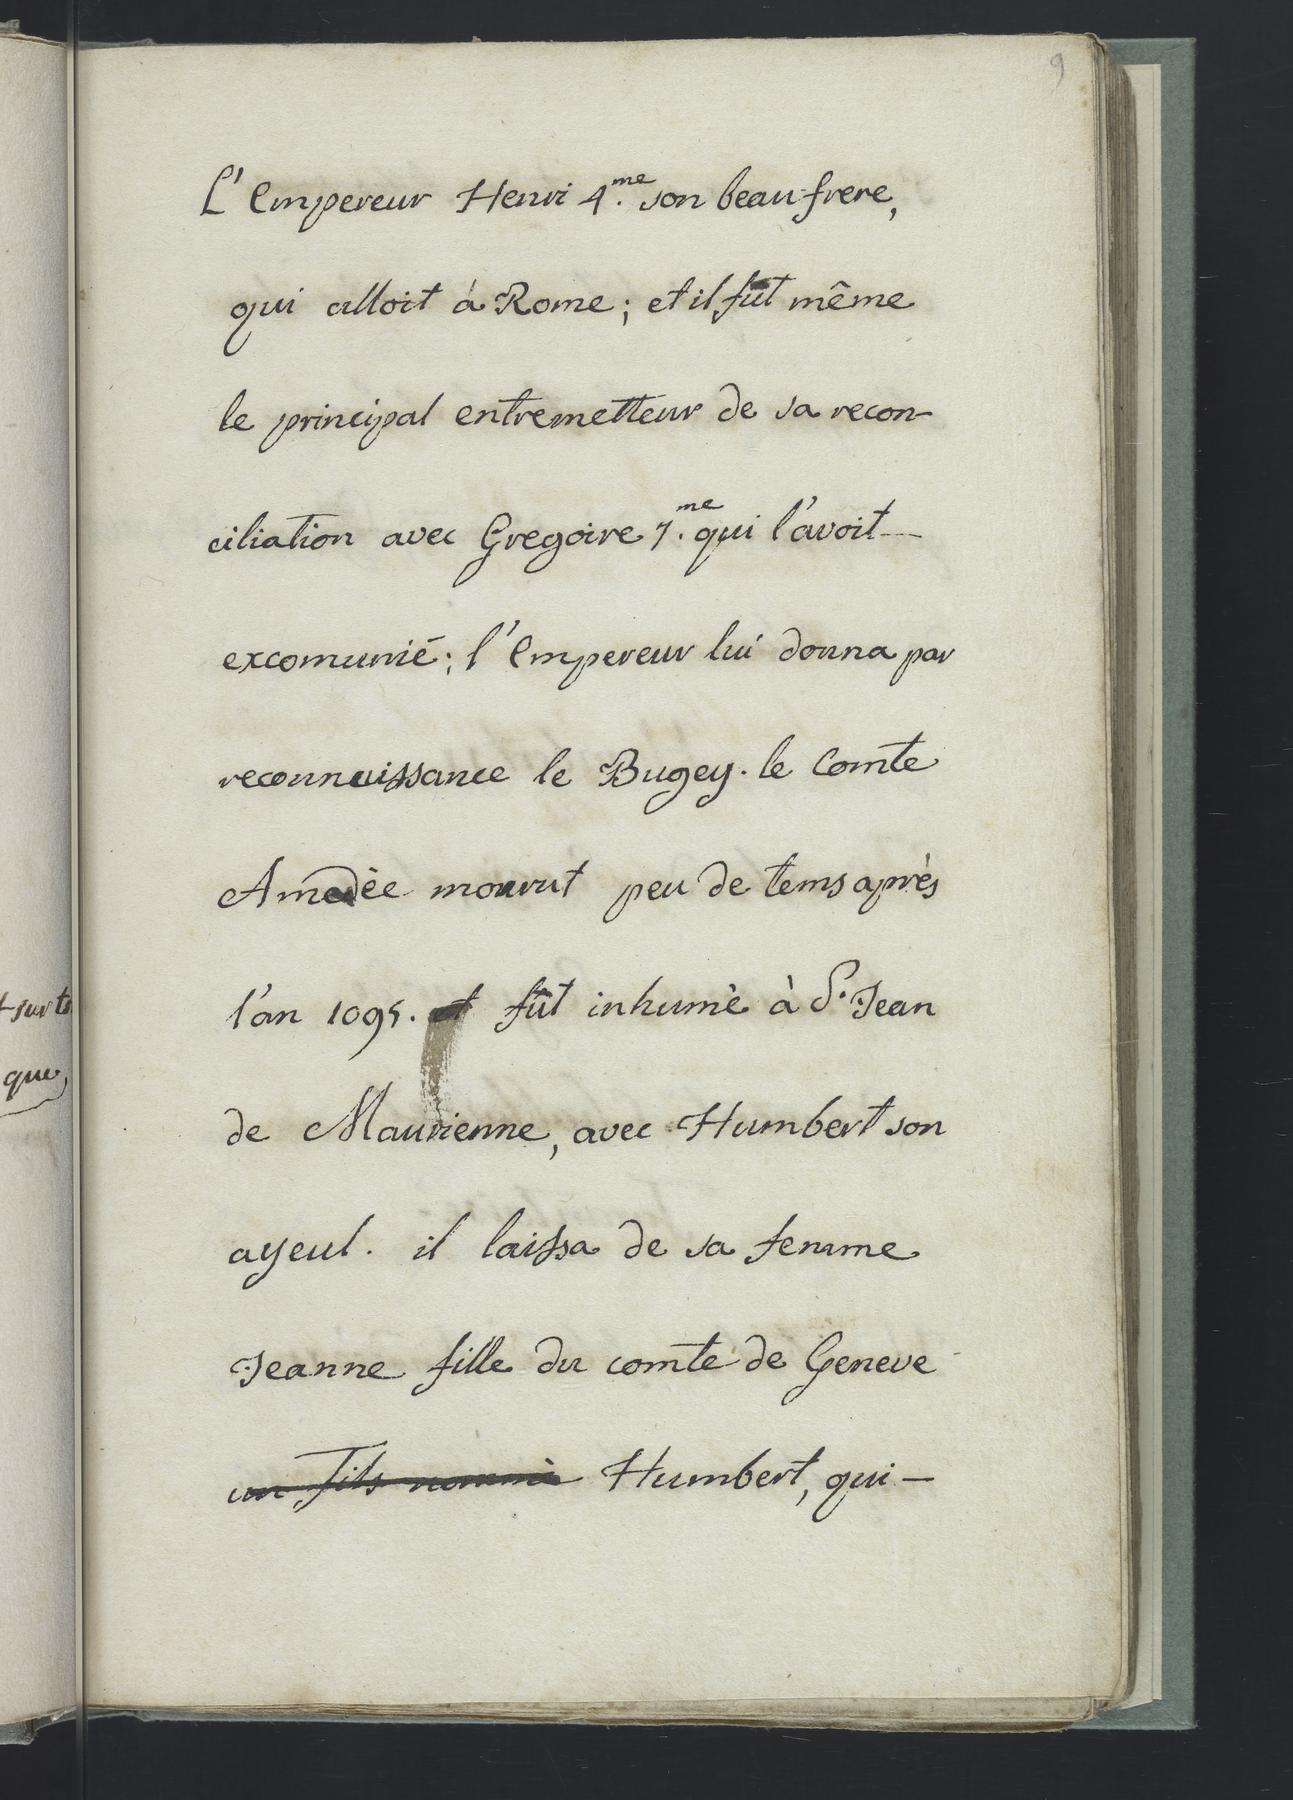 9
L'Empereur Henri 4.me son beau-frere,
qui alloit à Rome; et il fût même
le principal entremetteur de sa recon-
ciliation avec Gregoire 7.me qui l'avoit—
excomunié; l'Empereur lui donna par
reconnaissance le Bugey. le Comte
Amedèe mourut peu de tems après
l'an 1095. et fût inhumè à S.t Jean
de Maurienne, avec Humbert son
ayeul. il laissa de sa femme
Jeanne fille du comte de Geneve
un Fils nommè Humbert, qui—
que,